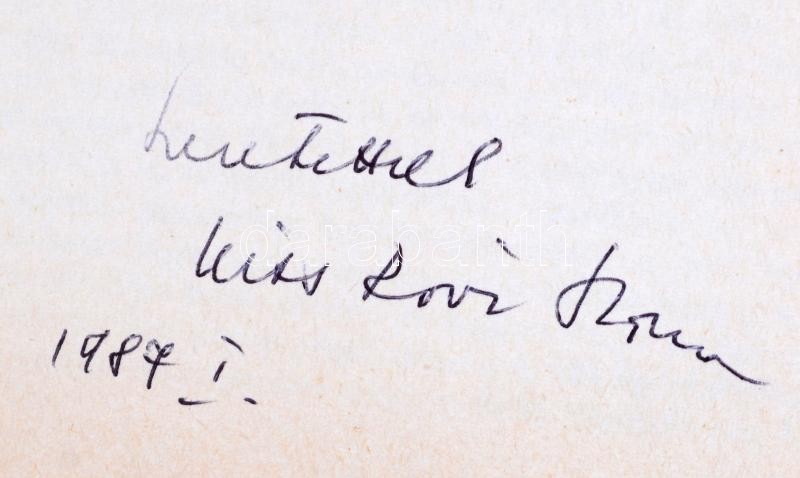 Szeretettel
Kiss Kovi Ilona
1987 I.
darabanth